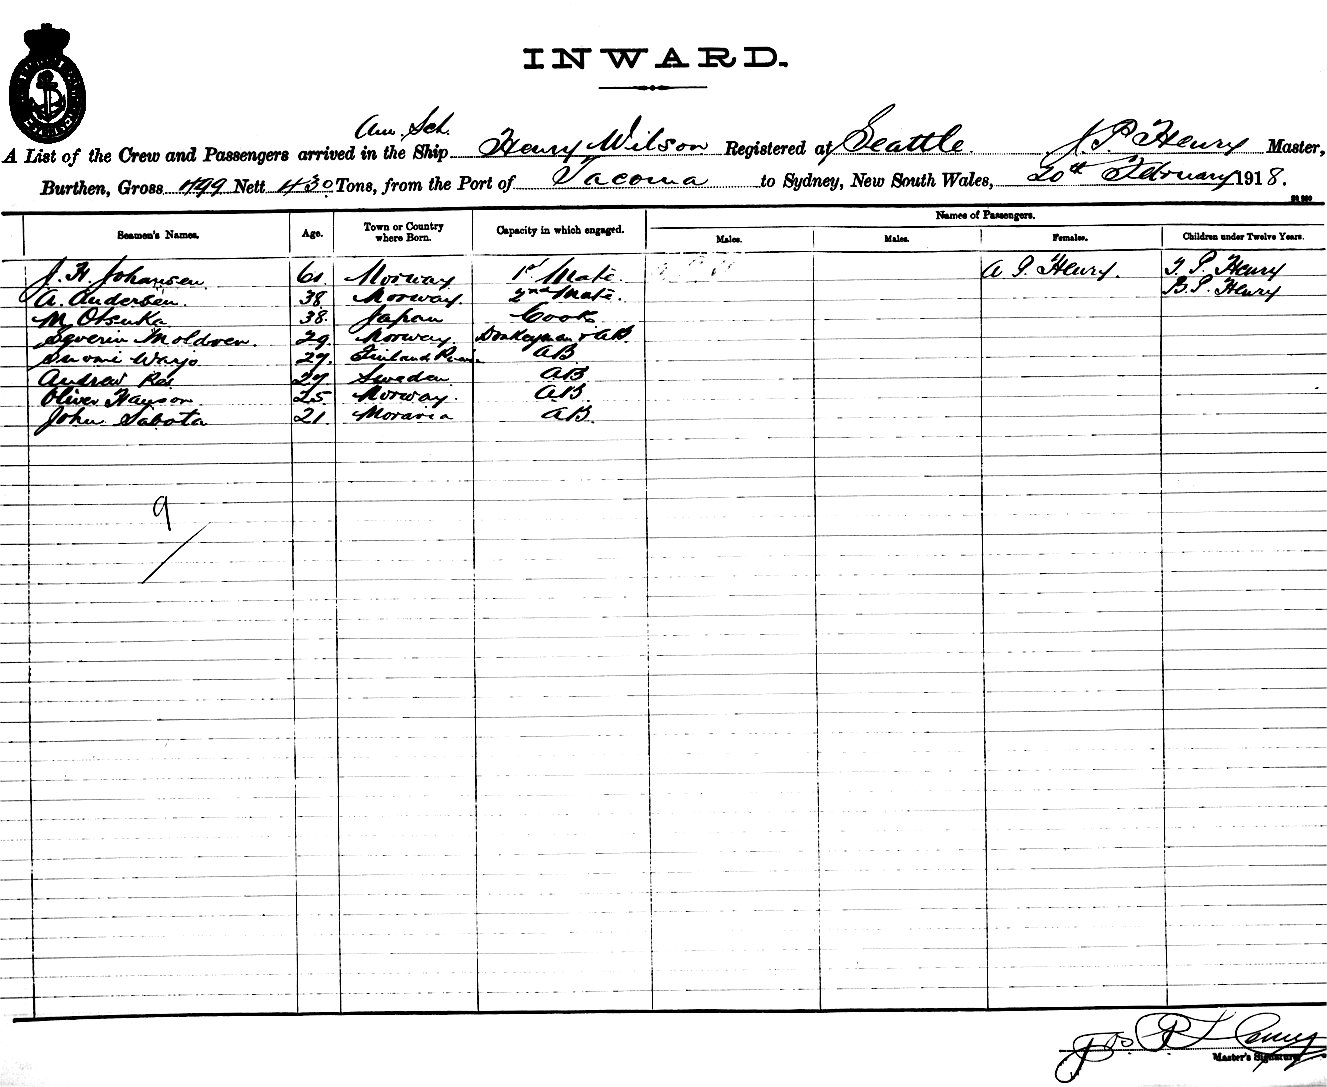 INWARD.
Am. Sch.
A List of the Crew and Passengers arrived in the Ship Henry Wilson Registered at Seattle J. P. Henry Master,
Burthen, Gross 499 Nett 430 Tons, from the Port of Tacoma to Sydney, New South Wales, 20th February 1918.
Names of Passengers.
Seamen's Names. Age. Town or Country where Born. Capacity in which engaged. Males. Males. Females. Children under Twelve Years.
J. H. Johansen 61 Norway 1st Mate. A. P. Henry. T. P. Henry
A. Andersen. 38 Norway. 2nd Mate. B. P. Henry
M. Otsuka 38. Japan Cook
Severin Moldven. 29 Norway. Donkeyman & AB.
Suomi Warjo 29 Finland AB
Andrew 29 Sweden AB
Oliver Hanson 25 Norway. AB.
John Sabota 21. Moravia AB.
9
Jos. P. Henry
Master's Signature